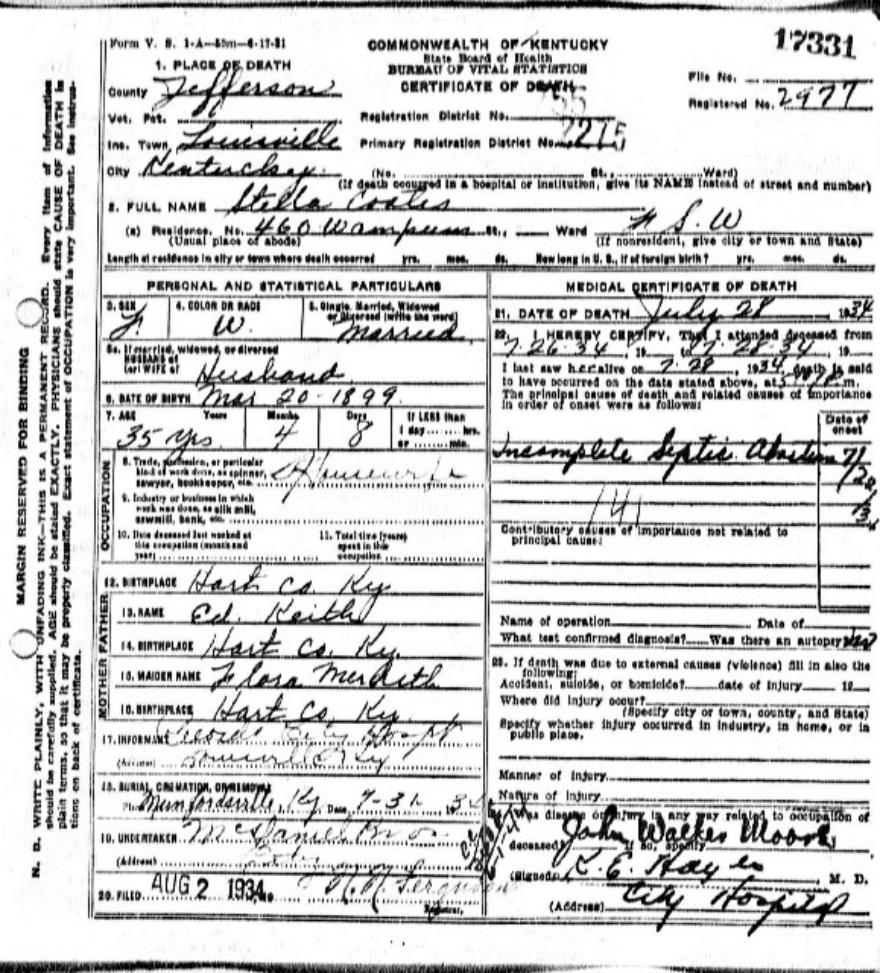 17331
Form V. S. 1-A—50m—6-17-31
COMMONWEALTH OF KENTUCKY
State Board of Health
BUREAU OF VITAL STATISTICS
CERTIFICATE OF DEATH
File No.
Registered No. 2977
1. PLACE OF DEATH
County Jefferson
Vot. Pct.
Registration District No. 755
Inc. Town Louisville
Primary Registration District No. 7275
City Kentucky
(No. St., Ward)
(If death occurred in a hospital or institution, give its NAME instead of street and number)
2. FULL NAME Stella Coales
(a) Residence. No. 460 Wampum St., Ward
(Usual place of abode)
(If nonresident, give city or town and State)
Length of residence in city or town where death occurred yrs. mos. ds. How long in U. S., if of foreign birth? yrs. mos. ds.
PERSONAL AND STATISTICAL PARTICULARS
3. SEX F.
4. COLOR OR RACE W.
5. Single, Married, Widowed or Divorced (write the word) Married
5a. If married, widowed, or divorced
HUSBAND of
(or) WIFE of Husband
6. DATE OF BIRTH Mar 20-1899
7. AGE Years Months Days If LESS than
35 yrs 4 8 1 day hrs.
or min.
OCCUPATION
8. Trade, profession, or particular
kind of work done, as spinner,
sawyer, bookkeeper, etc. Housewife
9. Industry or business in which
work was done, as silk mill,
sawmill, bank, etc.
10. Date deceased last worked at
this occupation (month and
year)
11. Total time (years)
spent in this
occupation
12. BIRTHPLACE Hart Co. Ky
FATHER
13. NAME Ed. Keith
14. BIRTHPLACE Hart Co. Ky.
MOTHER
15. MAIDEN NAME Flora Meredith
16. BIRTHPLACE Hart Co. Ky.
17. INFORMANT Records City Hospt
(Address) Louisville Ky
18. BURIAL, CREMATION, OR REMOVAL
Place Munfordsville, Ky Date 7-31 34
19. UNDERTAKER McDaniel Bros
(Address) City
20. FILED AUG 2 1934 Ferguson
Registrar.
MEDICAL CERTIFICATE OF DEATH
21. DATE OF DEATH July 28, 1934
22. I HEREBY CERTIFY, That I attended deceased from
7-26-34, 19 to 7-28-34, 19
I last saw her alive on 7-28, 1934, death is said
to have occurred on the date stated above, at m.
The principal cause of death and related causes of importance
in order of onset were as follows:
Date of
onset
Incomplete Septic Abortion 7/
20
/34
141
Contributory causes of importance not related to
principal cause:
Name of operation Date of
What test confirmed diagnosis? Was there an autopsy? no
23. If death was due to external causes (violence) fill in also the
following:
Accident, suicide, or homicide? date of injury 19
Where did injury occur?
(Specify city or town, county, and State)
Specify whether injury occurred in industry, in home, or in
public place.
Manner of injury
Nature of injury
Was disease or injury in any way related to occupation of
deceased? If so, specify
John Walker Moore
(Signed) K. E. Hayes M. D.
(Address) City Hospital
MARGIN RESERVED FOR BINDING
N. B. WRITE PLAINLY, WITH UNFADING INK—THIS IS A PERMANENT RECORD. Every item of information
should be carefully supplied. AGE should be stated EXACTLY. PHYSICIANS should state CAUSE OF DEATH in
plain terms, so that it may be properly classified. Exact statement of OCCUPATION is very important. See instruc-
tions on back of certificate.